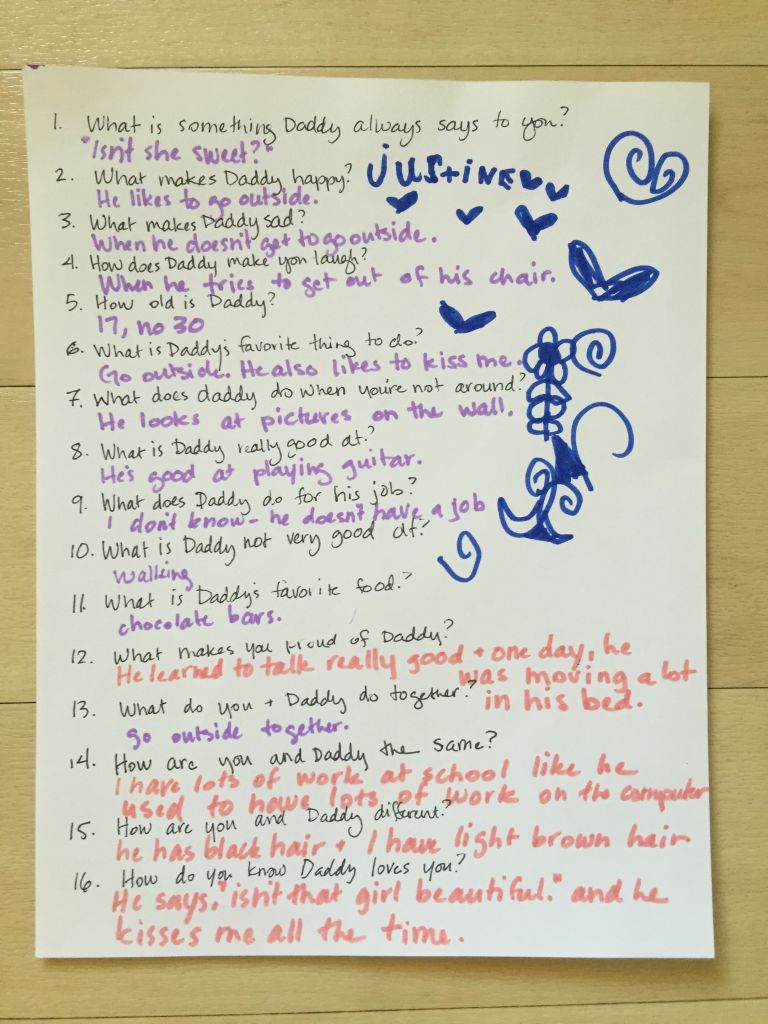 1. What is something Daddy always says to you?
"Isn't she sweet?"
2. What makes Daddy happy? JUStiNE
He likes to go outside.
3. What makes Daddy sad?
When he doesn't get to go outside.
4. How does Daddy make you laugh?
When he tries to get out of his chair.
5. How old is Daddy?
17, no 30
6. What is Daddy's favorite thing to do?
Go outside. He also likes to kiss me.
7. What does daddy do when you're not around?
He looks at pictures on the wall.
8. What is Daddy really good at?
He's good at playing guitar.
9. What does Daddy do for his job?
I don't know - he doesn't have a job
10. What is Daddy not very good at?
walking
11. What is Daddy's favorite food?
chocolate bars.
12. What makes you proud of Daddy?
He learned to talk really good + one day, he
was moving a lot
13. What do you + Daddy do together? in his bed.
go outside together.
14. How are you and Daddy the same?
I have lots of work at school like he
used to have lots of work on the computer
15. How are you and Daddy different?
he has black hair + I have light brown hair
16. How do you know Daddy loves you?
He says, "isn't that girl beautiful." and he
kisses me all the time.